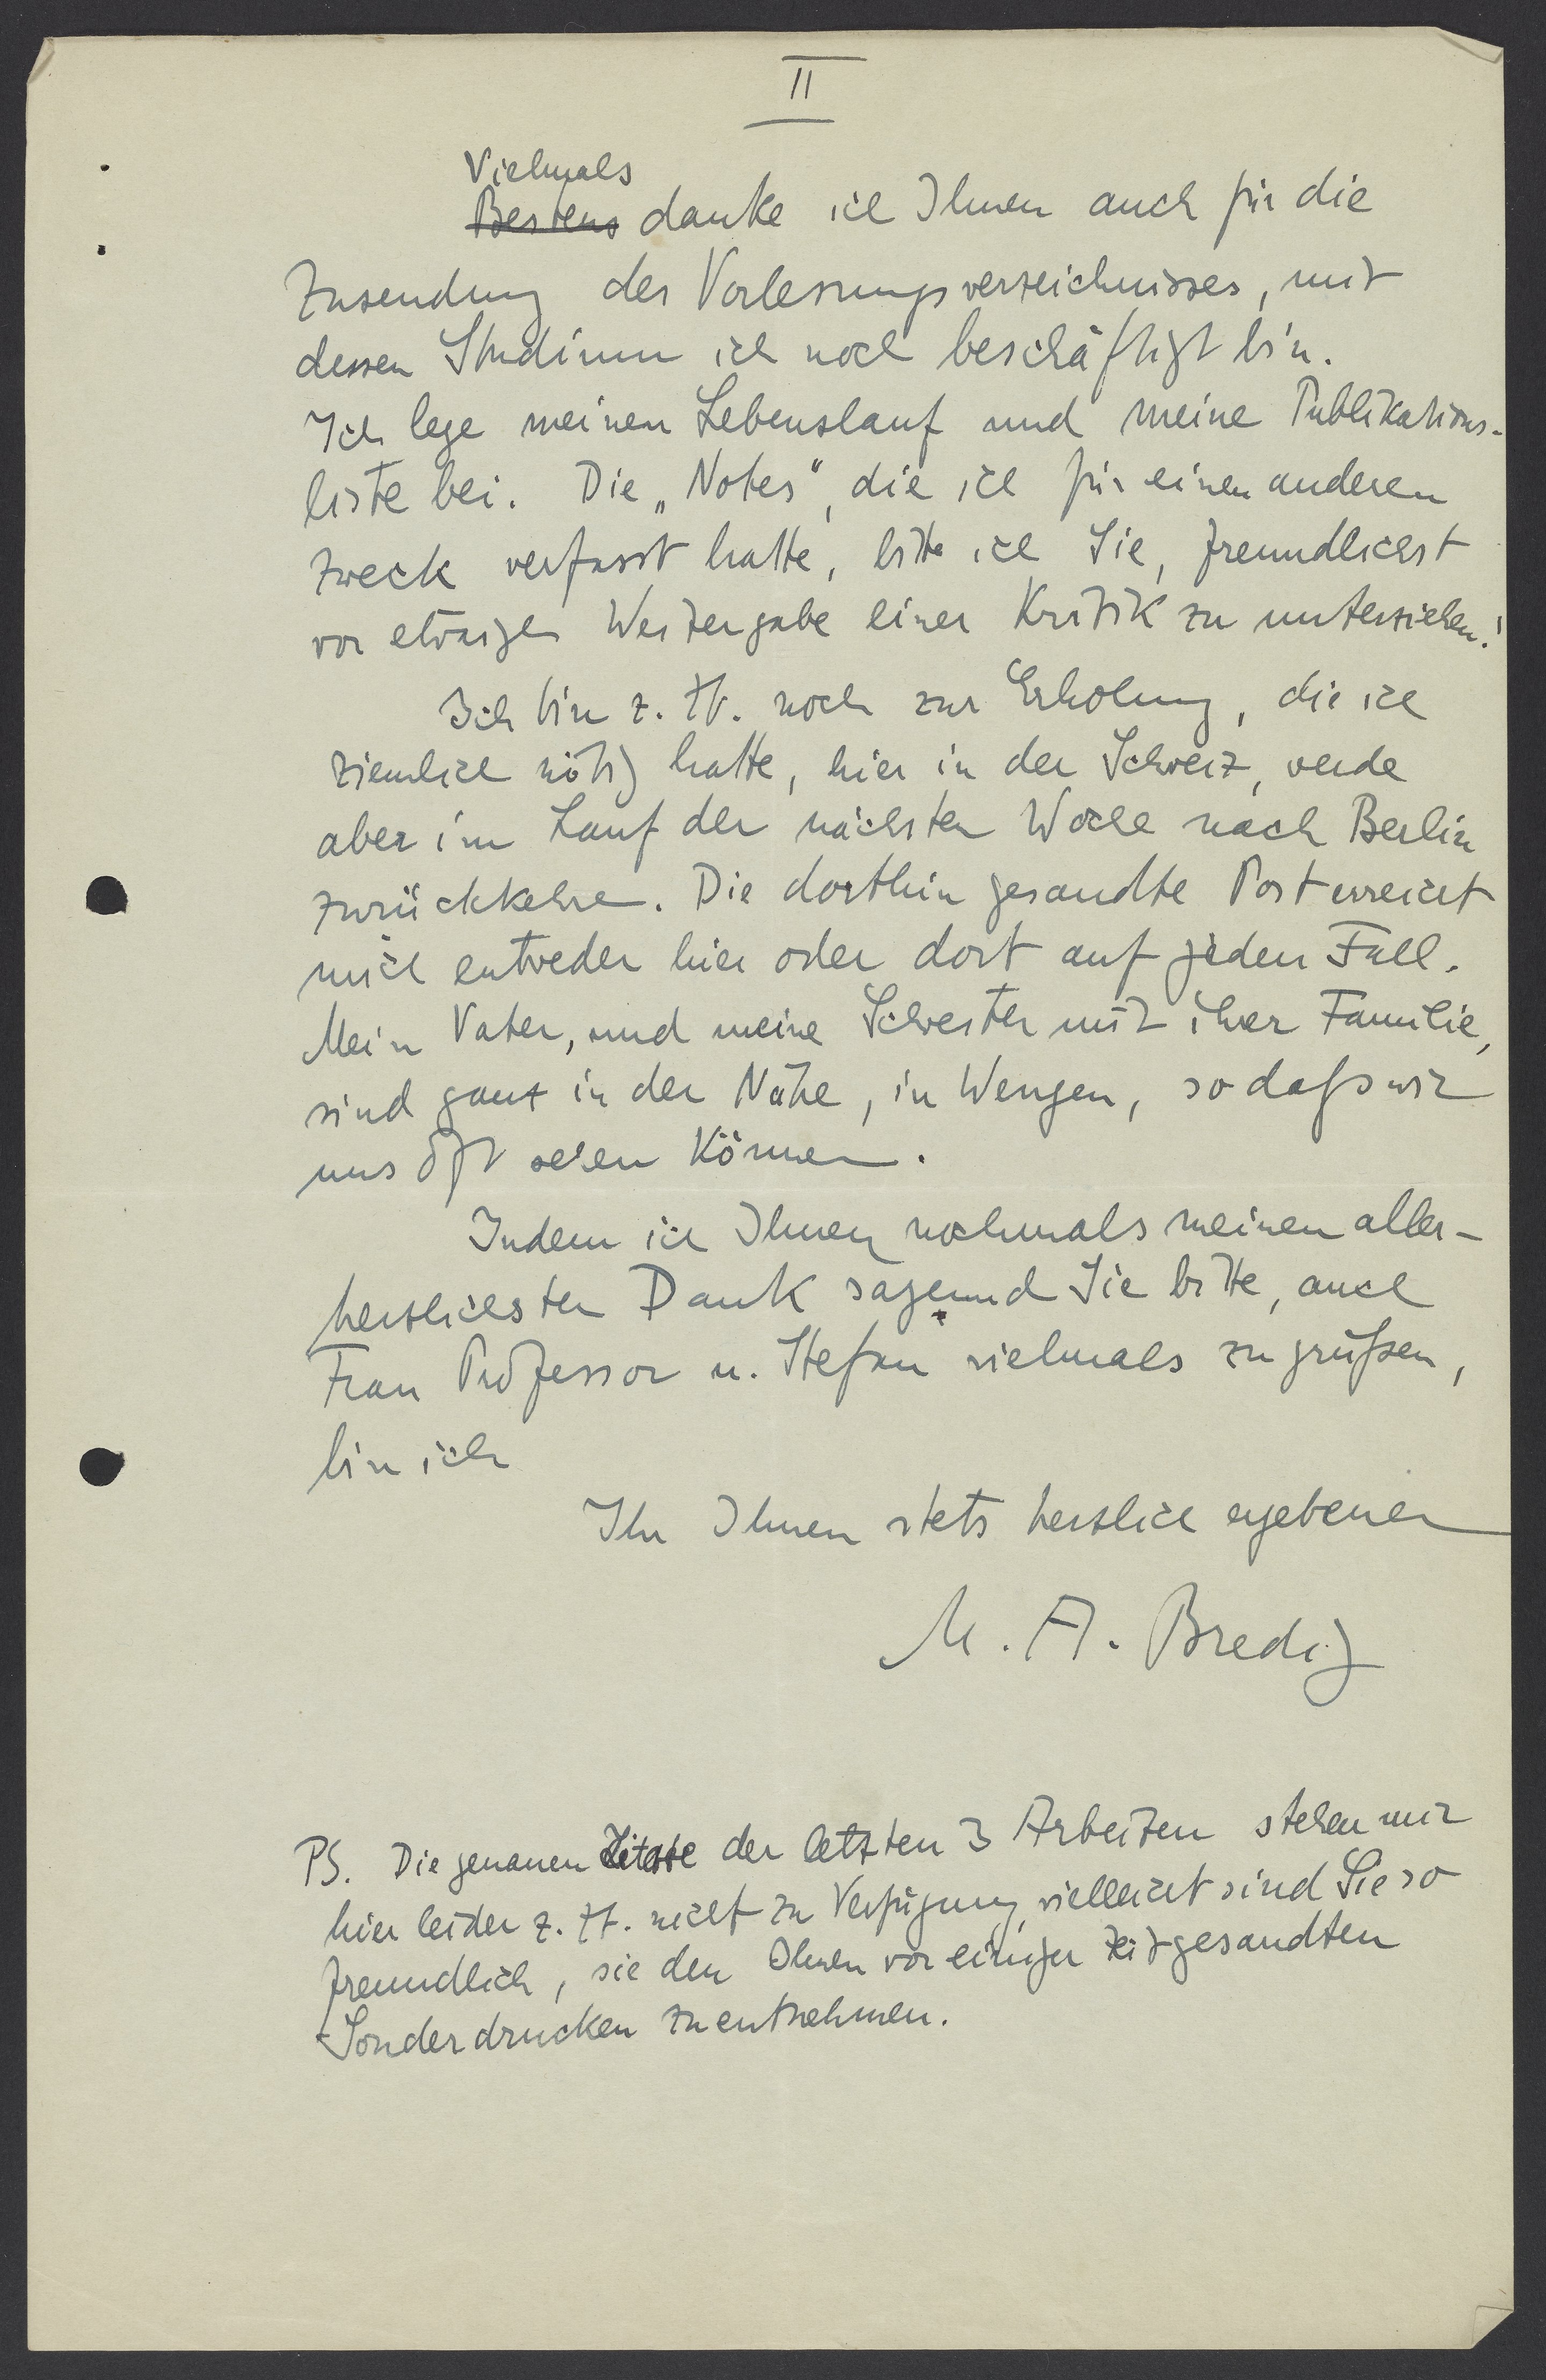 II
Vielmals
Bestens danke ich Ihnen auch für die
Zusendung des Vorlesungsverzeichnisses, mit
dessen Studium ich noch beschäftigt bin.
Ich lege meinen Lebenslauf und meine Publikations-
liste bei. Die „Notes“, die ich für einen anderen
Zweck verfasst hatte, bitte ich Sie, freundlichst
vor etwaiger Weitergabe einer Kritik zu unterziehen!
Ich bin z. Zt. noch zur Erholung, die ich
ziemlich nötig hatte, hier in der Schweiz, werde
aber im Lauf der nächsten Woche nach Berlin
zurückkehren. Die dorthin gesandte Post erreicht
mich entweder hier oder dort auf jeden Fall.
Mein Vater, und meine Schwester mit ihrer Familie,
sind ganz in der Nähe, in Wengen, so daß wir
uns oft sehen können.
Indem ich Ihnen nochmals meinen aller-
herzlichsten Dank sage und Sie bitte, auch
Frau Professor u. Stefan vielmals zu grüßen,
bin ich
Ihr Ihnen stets herzlich ergebener
M. A. Bredig
PS. Die genauen Zitate der letzten 3 Arbeiten stehen mir
hier leider z. Zt. nicht zu Verfügung, vielleicht sind Sie so
freundlich, sie den Ihnen vor einiger Zeit gesandten
Sonderdrucken zu entnehmen.